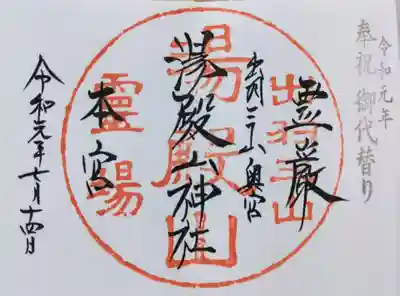 令和元年
奉祝 御代替り
霊巌
出羽三山奥宮
湯殿山神社
本宮
令和元年七月十四日
出羽三山
湯殿山
靈場